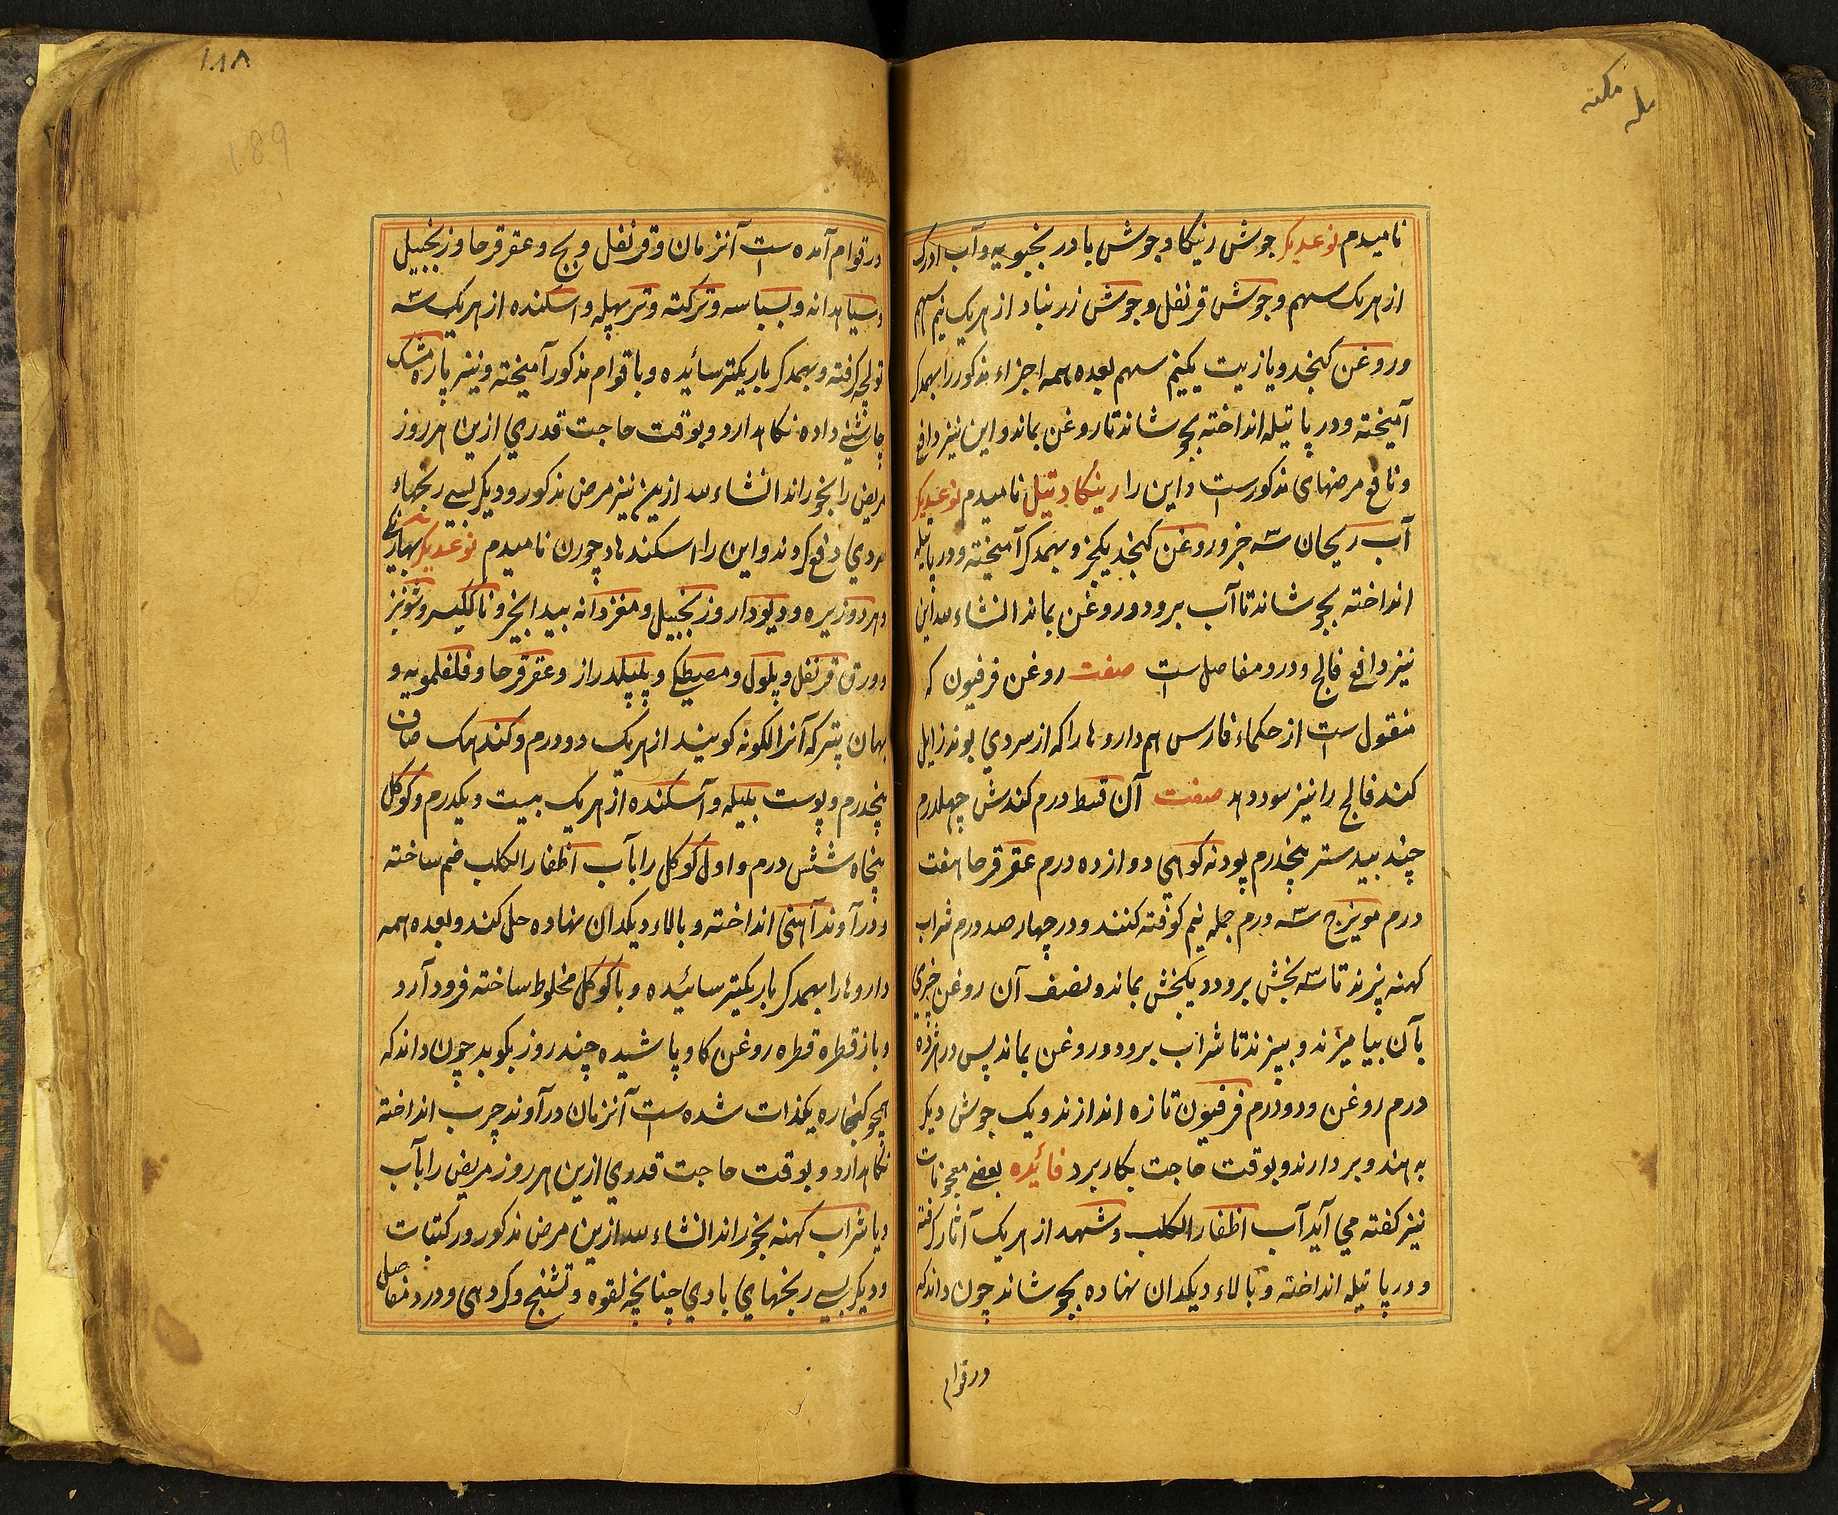 نامیدم نوعدیکر جوش رنیکا و جوش بادرنجبویه و آب ادرک
از هریک سهم و جوش قرنفل و جوش زرنباد از هریک نیم سهم
و روغن کنجد و یا زیت یکنیم سهم بعده همه اجزاء مذکور را بهمدکر
آمیخته و در پاتیله انداخته بجوشاند تا روغن بماند و این نیز دافع
و نافع مرضهای مذکورست و این را رینکاد تیل نامیدم نوعدیکر
آب ریحان سه جزو روغن کنجد یکجز و بهمدکر آمیخته و در پاتیله
انداخته بجوشاند تا آب برود و روغن بماند انشاء الله این
نیز دافع فالج و درد مفاصل است صفت روغن فرفیون که
منقول است از حکماء فارس هم داروها را که از سردي بوند زایل
کند فالج را نیز سود دهد صفت آن قسط درم کندش چهلدرم
چند بیدستر پنجدرم پودنه کوهي دوازده درم عقرقرحا هفت
درم مویزج سه درم جمله نیم کوفته کنند و در چهار صد درم شراب
کهنه پزند تا سه بخش برود و یکبخش بماند و نصف آن روغن خیري
بآن بیامیزند و بپزند تا شراب برود و روغن بماند پس در هر ده
درم روغن دو درم فرفیون تازه اندازند و یک جوش دیکر
بدهند و بردارند و بوقت حاجت بکار برد فائیده بعضے معجونات
نیز کفته مي آید آب اظفار الکلب و شهد از هریک آثار کرفته
و در پاتیله انداخته و بالاء دیکدان نهاده بجوشاند چون داند که
در قوام
۱۸۸
189
در قوام آمده است آنزمان قرنفل و بج و عقرقرحا و زنجبیل
و سیاهدانه و بسباسه و ترکته و ترپهله و اسکنده از هریک سه
تولچه کرفته و بهمدکر باریکتر سائیده و با قوام مذکور آمیخته و نیز پاره مشک
چاشنے داده نکاهدارد و بوقت حاجت قدري ازین هر روز
مریض را بخوراند انشاء الله ازین نیز مرض مذکور و دیکر بسے رنجهاء
سردي دافع کردند و این را اسکندهاد چورن نامیدم نوعدیکر بهارنکي
و هردو زیره و دیودار و زنجبیل و مغز دانه بید انجیر و ناکیسر و شونیز
و ورق قرنفل و پلول و مصیطکے و پلپلدراز و عقرقرحا و فلفلمویه و
بهمان پتر که آنرا لکونه کویند از هریک دو درم و کندهک صاف
پنجدرم و پوست بلیله و آسکنده از هریک بیست و یکدرم و کوکل
پنجاه شش درم و اول کوکل را بآب اظفار الکلب ضم ساخته
و در آوند آهنی انداخته و بالاء دیکدان نهاده حل کند و بعده همه
داروها را بهمدکر باریکتر سائیده و با کوکل مخلوط ساخته فرود آرد
و باز قطره قطره روغن کاو پاشیده چند روز بکوبد چون داند که
همچو کنجاره یکذات شده است آنزمان در آوند چرب انداخته
نکاهدارد و بوقت حاجت قدري ازین هر روز مریض را بآب
و یا شراب کهنه بخوراند انشاء الله ازین مرض مذکور در کتبات
و دیکر بسے رنجهاي بادي چنانچه لقوه و تشنج و کردهی و درد مفاصل